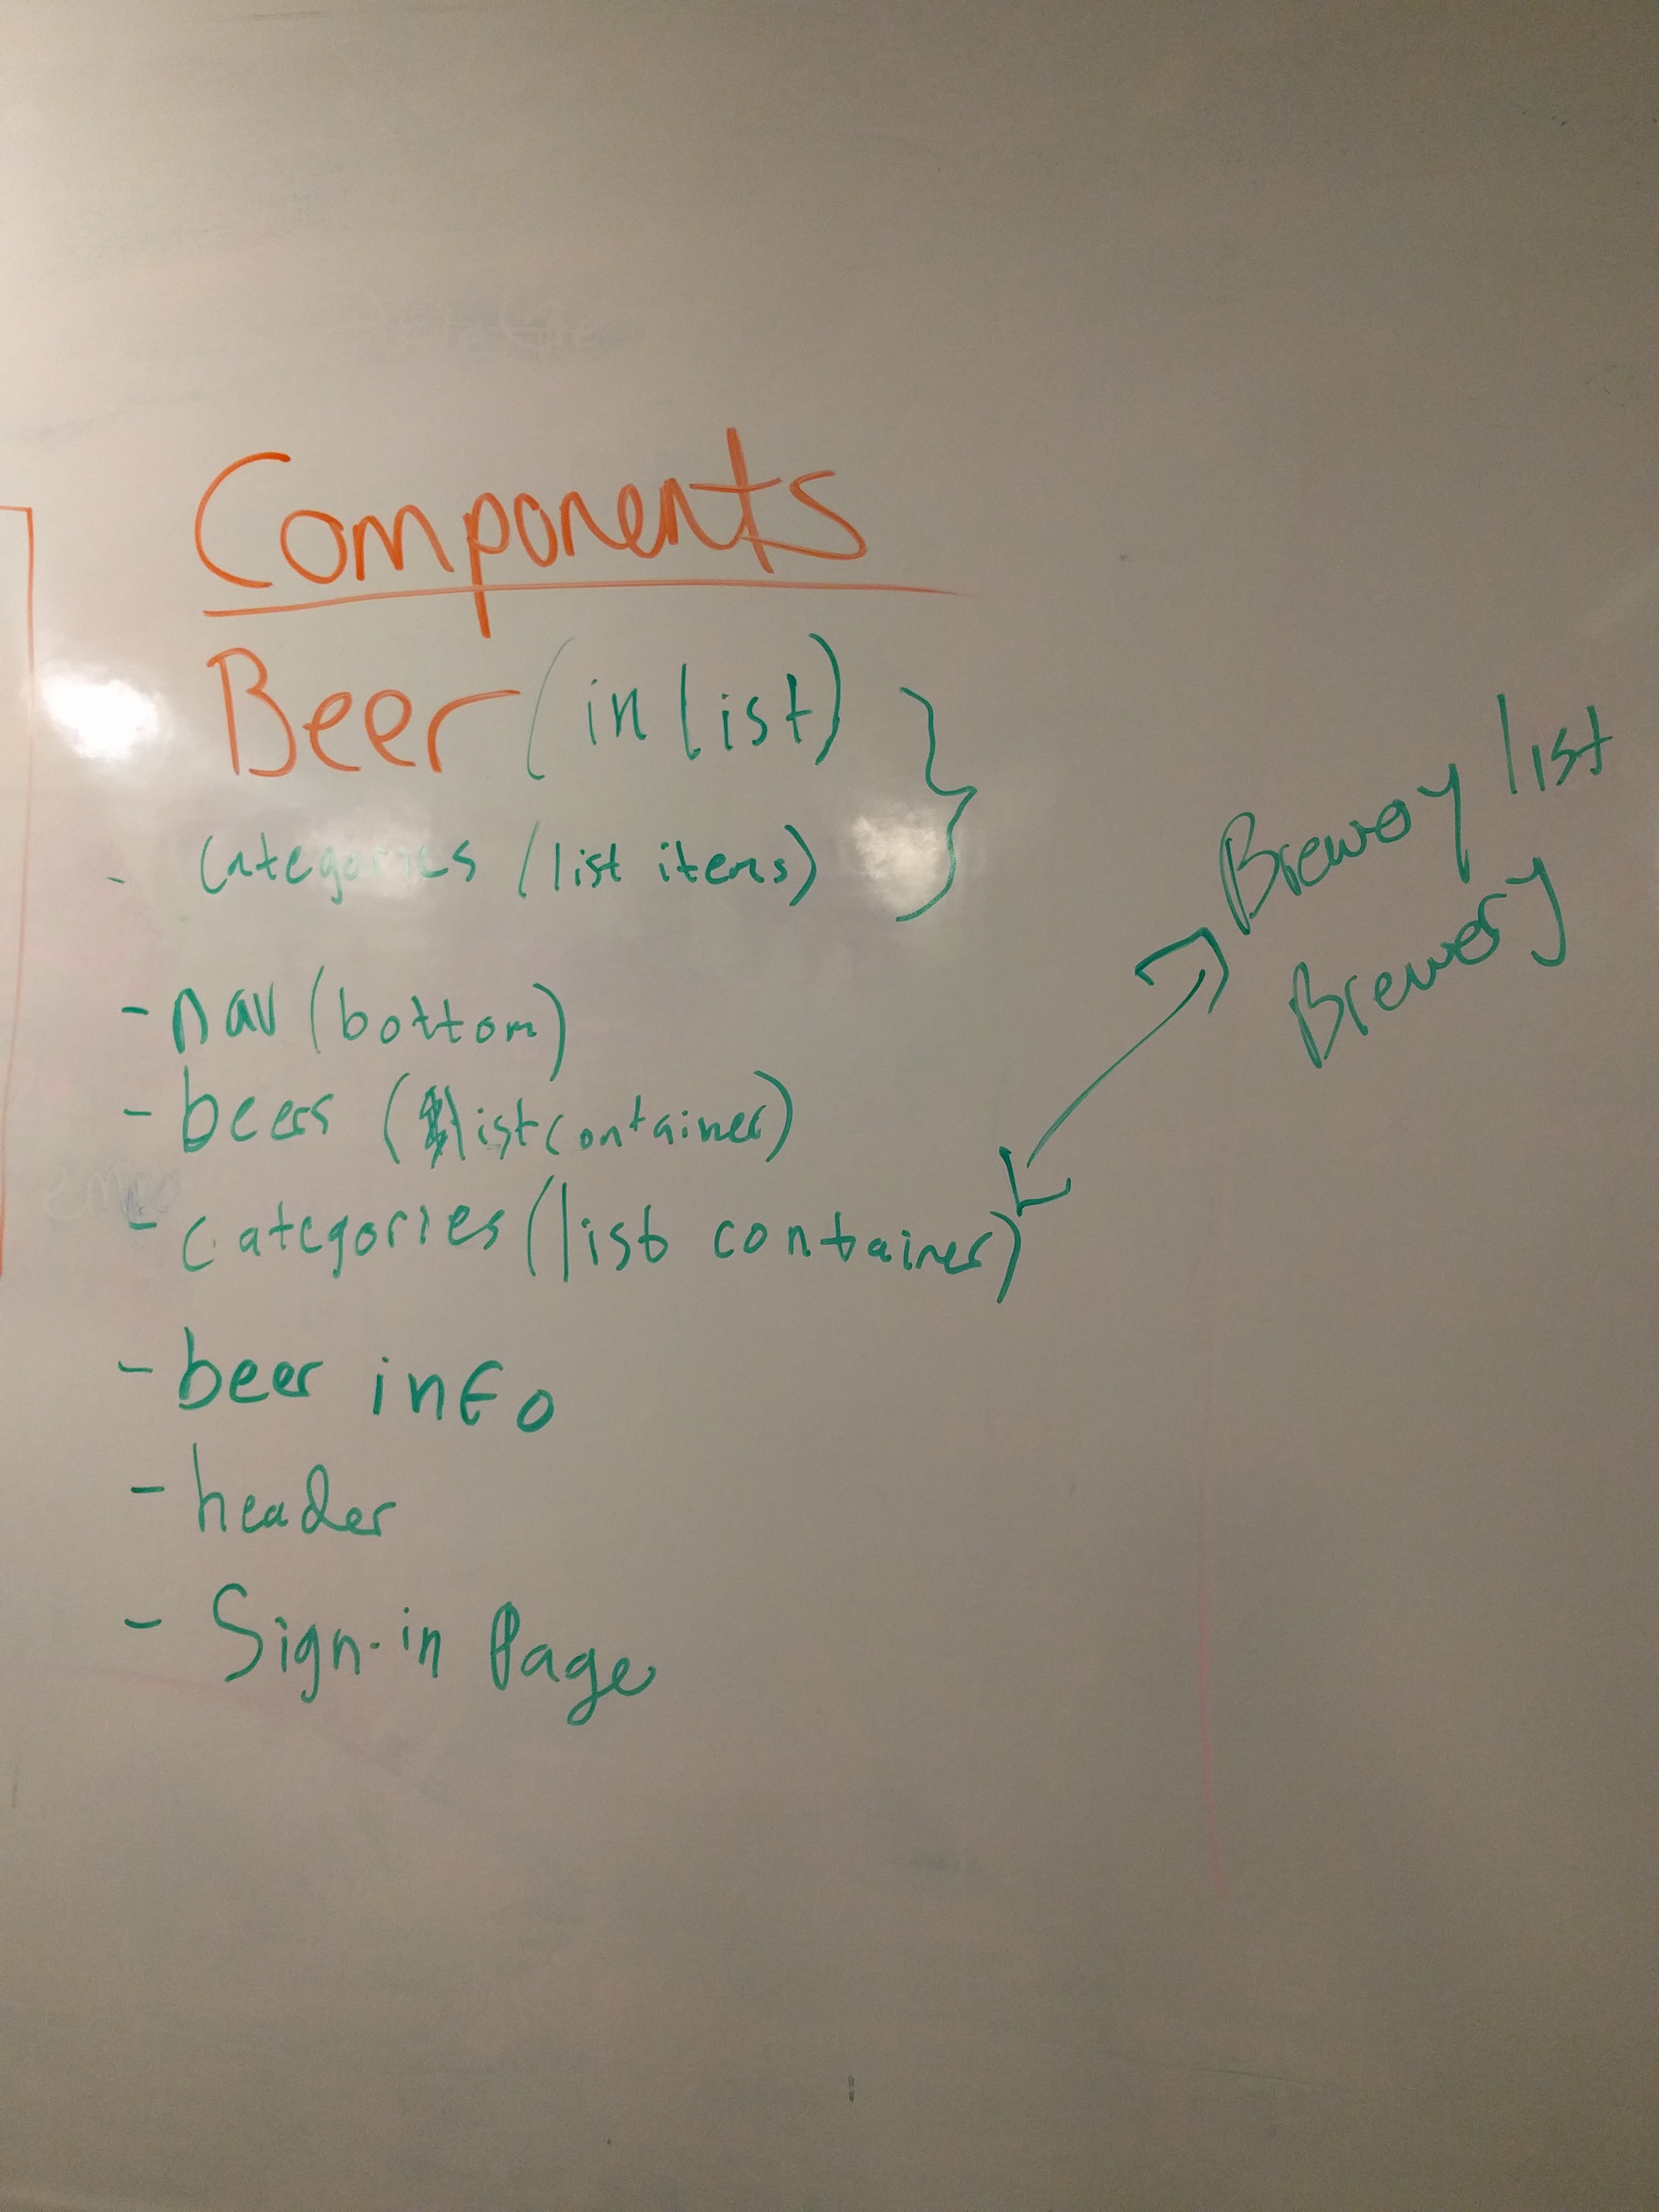 Components
Beer (in list)
- Categories (list items)
- nav (bottom)
- beers (listcontainer)
- categories (list container)
- beer info
- header
- Sign-in Page
Brewery list
Brewery